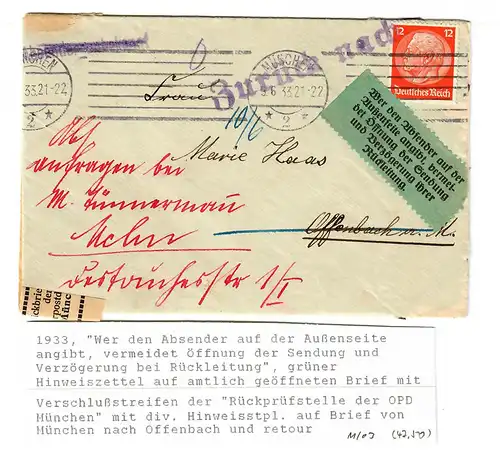 MÜNCHEN
33.21-22
2
MÜNCHEN
6.33.21-22
2
Zurück nach
12 12
Deutsches Reich
Wer den Absender auf der
Außenseite angibt, vermei-
det Öffnung der Sendung
und Verzögerung ihrer
Rückleitung.
Frau
10/6
Marie Haas
Offenbach a. M.
Abs
anfragen bei
M. Zimmermann
I
ckbrie
der
erpostd
Münc
1933, "Wer den Absender auf der Außenseite
angibt, vermeidet Öffnung der Sendung und
Verzögerung bei Rückleitung", grüner
Hinweiszettel auf amtlich geöffneten Brief mit
Verschlußstreifen der "Rückprüfstelle der OPD
München" mit div. Hinweisstpl. auf Brief von
München nach Offenbach und retour
(42,50)